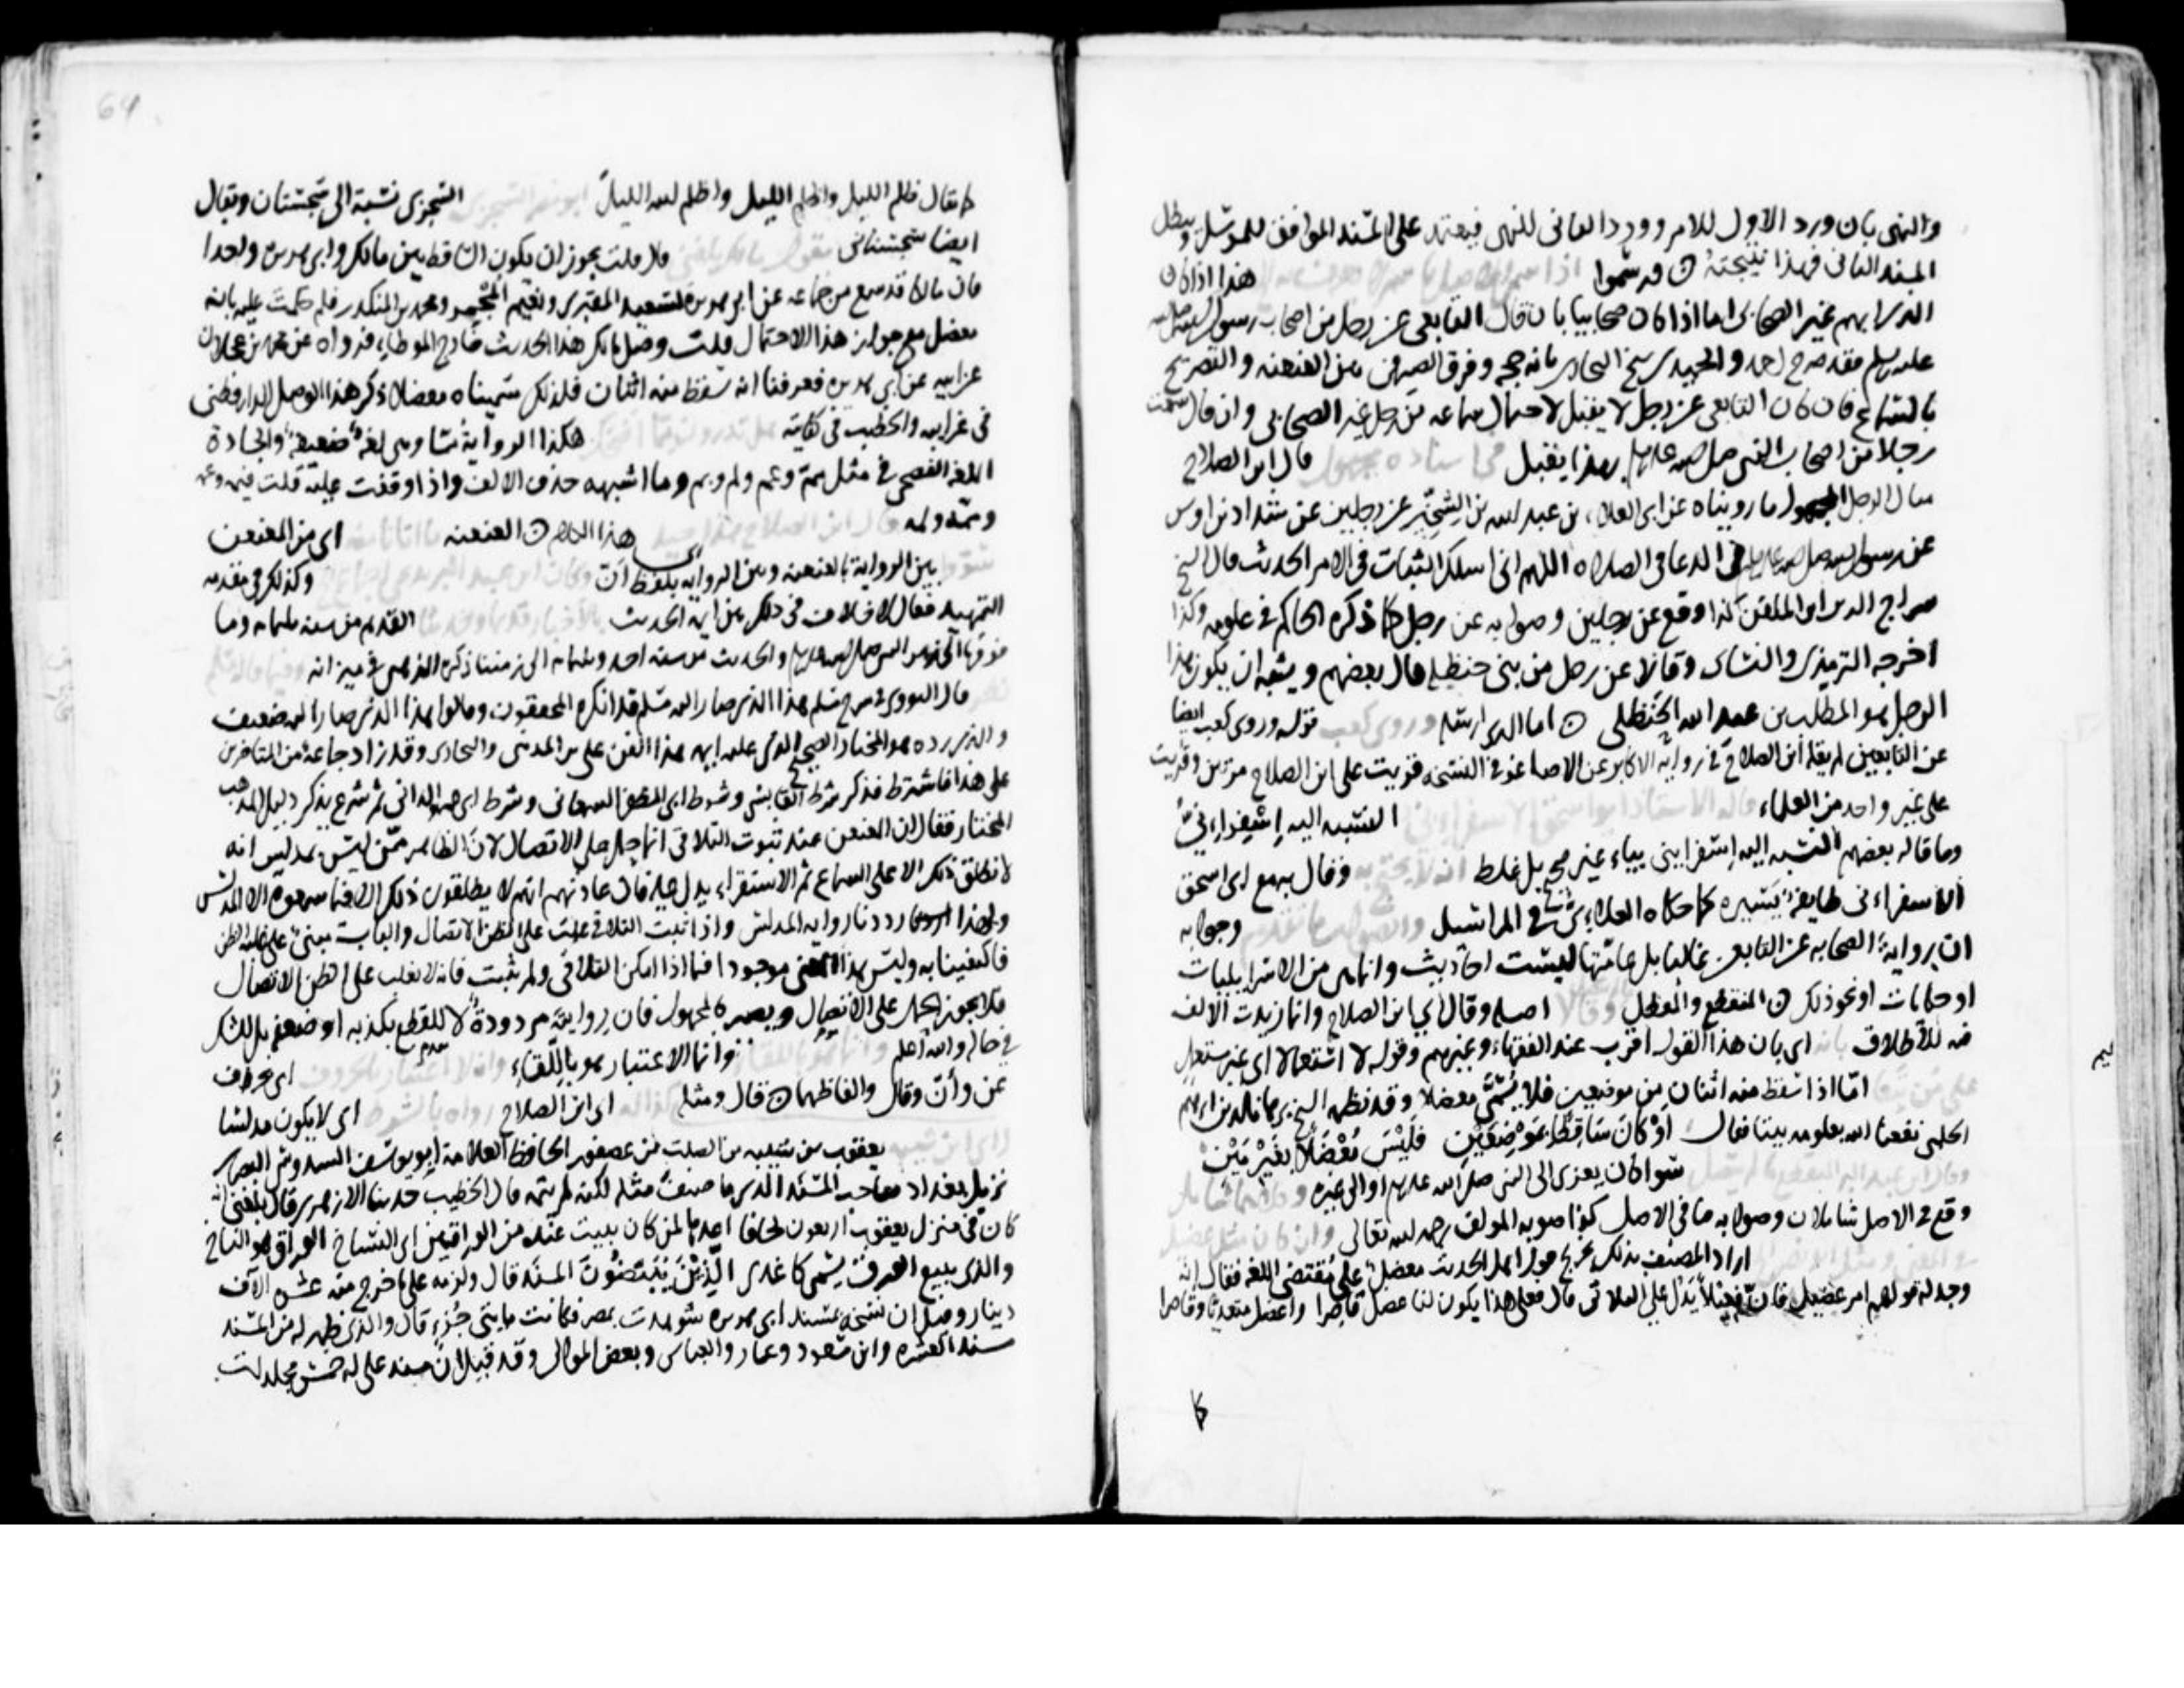 والنهى بان ورد الاول للامر وورد الثانى للنهى فيعتمد على المسند الموافق للمرسل ويبطل
المسند الثانى فهذا نتيجته ن قد سموا هذا اذا كان
الذى ابهم غير الصحابى اما اذا كان صحابيا بان قال التابعى عن رجل من اصحاب رسول الله صلى الله
عليه وسلم فقد صرح احمد والحميدى شيخ البخارى بانه حجة وفرق الصيرفى بين العنعنه والتصريح
بالسماع فان كان التابعى عن رجل لا يقبل لاحتمال سماعه من رجل غير الصحابى وان قال سمعت
رجلا من اصحاب النبى صلى الله عليه وسلم فهذا يقبل قال ابن الصلاح
مثال الرجل المجهول ما رويناه عن ابى العلاء بن عبد الله بن الشخير عن رجلين عن شداد بن اوس
عن رسول الله صلى الله عليه وسلم فى الدعا فى الصلاه اللهم انى اسلك الثبات فى الامر الحديث قال الشيخ
سراج الدين ابن الملقن كذا وقع عن رجلين وصوابه عن رجل كما ذكره الحاكم فى علومه وكذا
اخرجه الترمذى والنساى وقالا عن رجل من بنى حنظلة قال بعضهم ويشبه ان يكون هذا
الرجل هو المطلب بن عبد الله الحنظلى ن اما الذى ارسله قوله وروى كعب ايضا
عن التابعين لم يقله ابن الصلاح فى رواية الاكابر عن الاصاغر فى النسخه قريت على ابن الصلاح مرتين وقريت
على غير واحد من العلماء النسبه اليه اسفراءنى
وما قاله بعضهم النسبه اليه اسفراينى بياء غير صحيح بل غلط وقال بهمع ابى اسحق
الاسفراءنى طايفة يسيره كما حكاه العلاءى فى المراسيل وجوابه
ان رواية الصحابه عن التابعين غالبا بل عامتها ليست احاديث وانما هى من الاسراييليات
او حكايات او نحو ذلك ن المنقطع والمعضل اصله وقال اى ابن الصلاح وانما زيدت الالف
فيه للاطلاق اى بان هذا القول اقرب عند الفقهاء وغيرهم وقوله لا استعمالا اى غير مستعمل
امّا اذا سقط منه اثنان من موضعين فلا يُسمّى معضلا وقد نظمه الشيخ برهان الدين ابراهيم
الحلبى نفعنا الله بعلومه بيتا فقال اوْ كَانَ سَاقِطًا بمَوْضِعَيْنِ فليْسَ مُعْضَلاً بغَيْرِ مَيْنِ
سوا كان يعزى الى النبى صلى الله عليه وسلم او الى غيره
وقع فى الاصل شاملان وصوابه ما فى الاصل كذا صوبه المولف رحمه الله تعالى
اراد المصنف بذلك تخريج قول اهل الحديث معضل على مقتضى اللغه فقال انه
وجد له قولهم امر عضيل فان فعيلا يدل على الثلاثى قال فعلى هذا يكون لنا عضل قاصرا واعضل متعديا وقاصرا
كما
64
كما يقال ظلم الليل واظلم الليل واظلم الله الليل السجزى نسبة الى سجستان ويقال
ايضا سجستانى فلا قلت يجوز ان يكون الساقط بين مالك وابى هريره واحدا
فان مالكا قد سمع من جماعه عن ابى هريره كسعيد المقبرى ونعيم المجمر ومحمد بن المنكدر فلم حكمت عليه بانه
معضل مع جواز هذا الاحتمال قلت وصل مالك هذا الحديث خارج الموطاء فرواه عن محمد بن عجلان
عن ابيه عن ابى هريره فعرفنا انه سقط منه اثنان فلذلك سميناه معضلا ذكر هذا الوصل الدارقطنى
فى غرايبه والخطيب فى كفايته هكذا الرواية شا وهى لغة ضعيفة والجادة
اللغه الفصحى فى مثل مم وعم ولم وبم وما اشبهه حذف الالف واذا وقفت عليه قلت فيمه وعمه
وممه ولمه هذا الكلام ن العنعنه اى من المعنعن
بين الرواية بالعنعنه وبين الروايه بلفظ ان وكذلك فى مقدمه
التمهيد فقال لا خلاف فى ذلك بين اية الحديث القديم من سنه ثلثمايه وما
قال النووى فى شرح مسلم هذا الذى صار اليه مسلم قد انكره المحققون وقالوا هذا الذى صار اليه ضعيف
والذى رده هو المختار الصحيح الذى عليه ايمه هذا الفن على بن المدينى والبخارى وقد زاد جماعة من المتاخرين
على هذا فاشترط فذكر شرط القابسى وشرط ابى المظفر السمعانى وشرط ابى عمرو الدانى ثم شرع يذكر دليل المذهب
المختار فقال ان المعنعن عند ثبوت التلاقى انما حمل على الاتصال لان الظاهر ممن ليس بمدلس انه
لا يطلق ذلك الا على السماع ثم الاستقراء يدل عليه فان عادتهم انهم لا يطلقون ذلك الا فيما سمعوه الا المدلس
ولهذا رددنا روايه المدلس واذا ثبت التلاقى غلب على الظن الاتصال والباب مبنى على غلبة الظن
فاكتفينا به وليس هذا المعنى موجودا فيما اذا امكن التلاقى ولم يثبت فانه لا يغلب على الظن الاتصال
فلا يجوز الحمل على الاتصال ويصير كالمجهول فان روايته مردودة لا للقطع بكذبه او ضعفه بل للشك
فى حاله والله اعلم وانما الاعتبار هو باللقاء اى بحروف
عن وأنّ وقال والفاظها ن فقال ومثله اى ابن الصلاح اى لا يكون مدلسا
يعقوب بن شيبه بن الصلت بن عصفور الحافظ العلامة ابو يوسف السدوسى البصرى
نزيل بغداد صاحب المسند الذى ما صنف مثله لكنه لم يتمه قال الخطيب حدثنا الازهرى قال بلغنى انه
كان فى منزل يعقوب اربعون لحافا اعدها لمن كان يبيت عنده من الوراقين اى النساخ الوراق هو الناسخ
والذى يبيع الورق يسمى كاغدى الذِيْنَ يُبَيّضُونَ المسند قال ولزمه على ما خرج منه عشره الآف
دينار وقيل ان نسخة بمسند ابى هريره شوهدت بمصر فكانت مايتى جُزء قال والذى ظهر له من المسند
مسند العشره وابن مسعود وعمار والعباس وبعض الموالى وقد قيل ان مسند على له خمس مجلدات